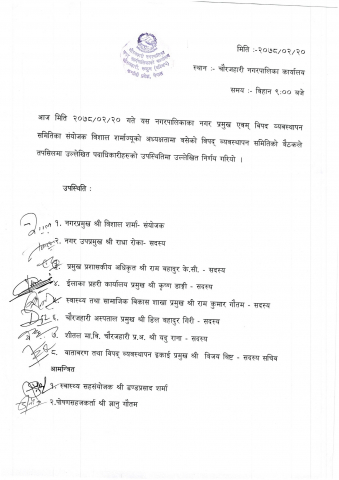 मिति :-२०७८/०२/२०
स्थान :- चौरजहारी नगरपालिका कार्यालय
समय :- विहान ९:०० बजे
आज मिति २०७८/०२/२० गते यस नगरपालिकाका नगर प्रमुख एवम् विपद व्यवस्थापन
समितिका संयोजक विशाल शर्माज्यूको अध्यक्षतामा वसेको विपद् व्यवस्थापन समितिको बैठकले
तपसिलमा उल्लेखित पदाधिकारीहरुको उपस्थितिमा उल्लेखित निर्णय गरियो ।
उपस्थिति :
१. नगरप्रमुख श्री विशाल शर्मा- संयोजक
२. नगर उपप्रमुख श्री राधा रोका- सदस्य
प्रमुख प्रशासकीय अधिकृत श्री राम बहादुर के.सी. - सदस्य
४. ईलाका प्रहरी कार्यालय प्रमुख श्री कृष्ण डाङी - सदस्य
स्वास्थ्य तथा सामाजिक विकास शाखा प्रमुख श्री राम कुमार गौतम - सदस्य
६. चौरजहारी अस्पताल प्रमुख श्री हिल बहादुर गिरी - सदस्य
७. शीतल मा.वि. चौरजहारी प्र.अ. श्री यदु राना - सदस्य
८. वातावरण तथा विपद् व्यवस्थापन इकाई प्रमुख श्री विजय बिष्ट - सदस्य सचिव
आमन्त्रित
१. स्वास्थ्य सहसंयोजक श्री डण्डप्रसाद शर्मा
२.पोषणसहजकर्ता श्री ज्ञानु गौतम